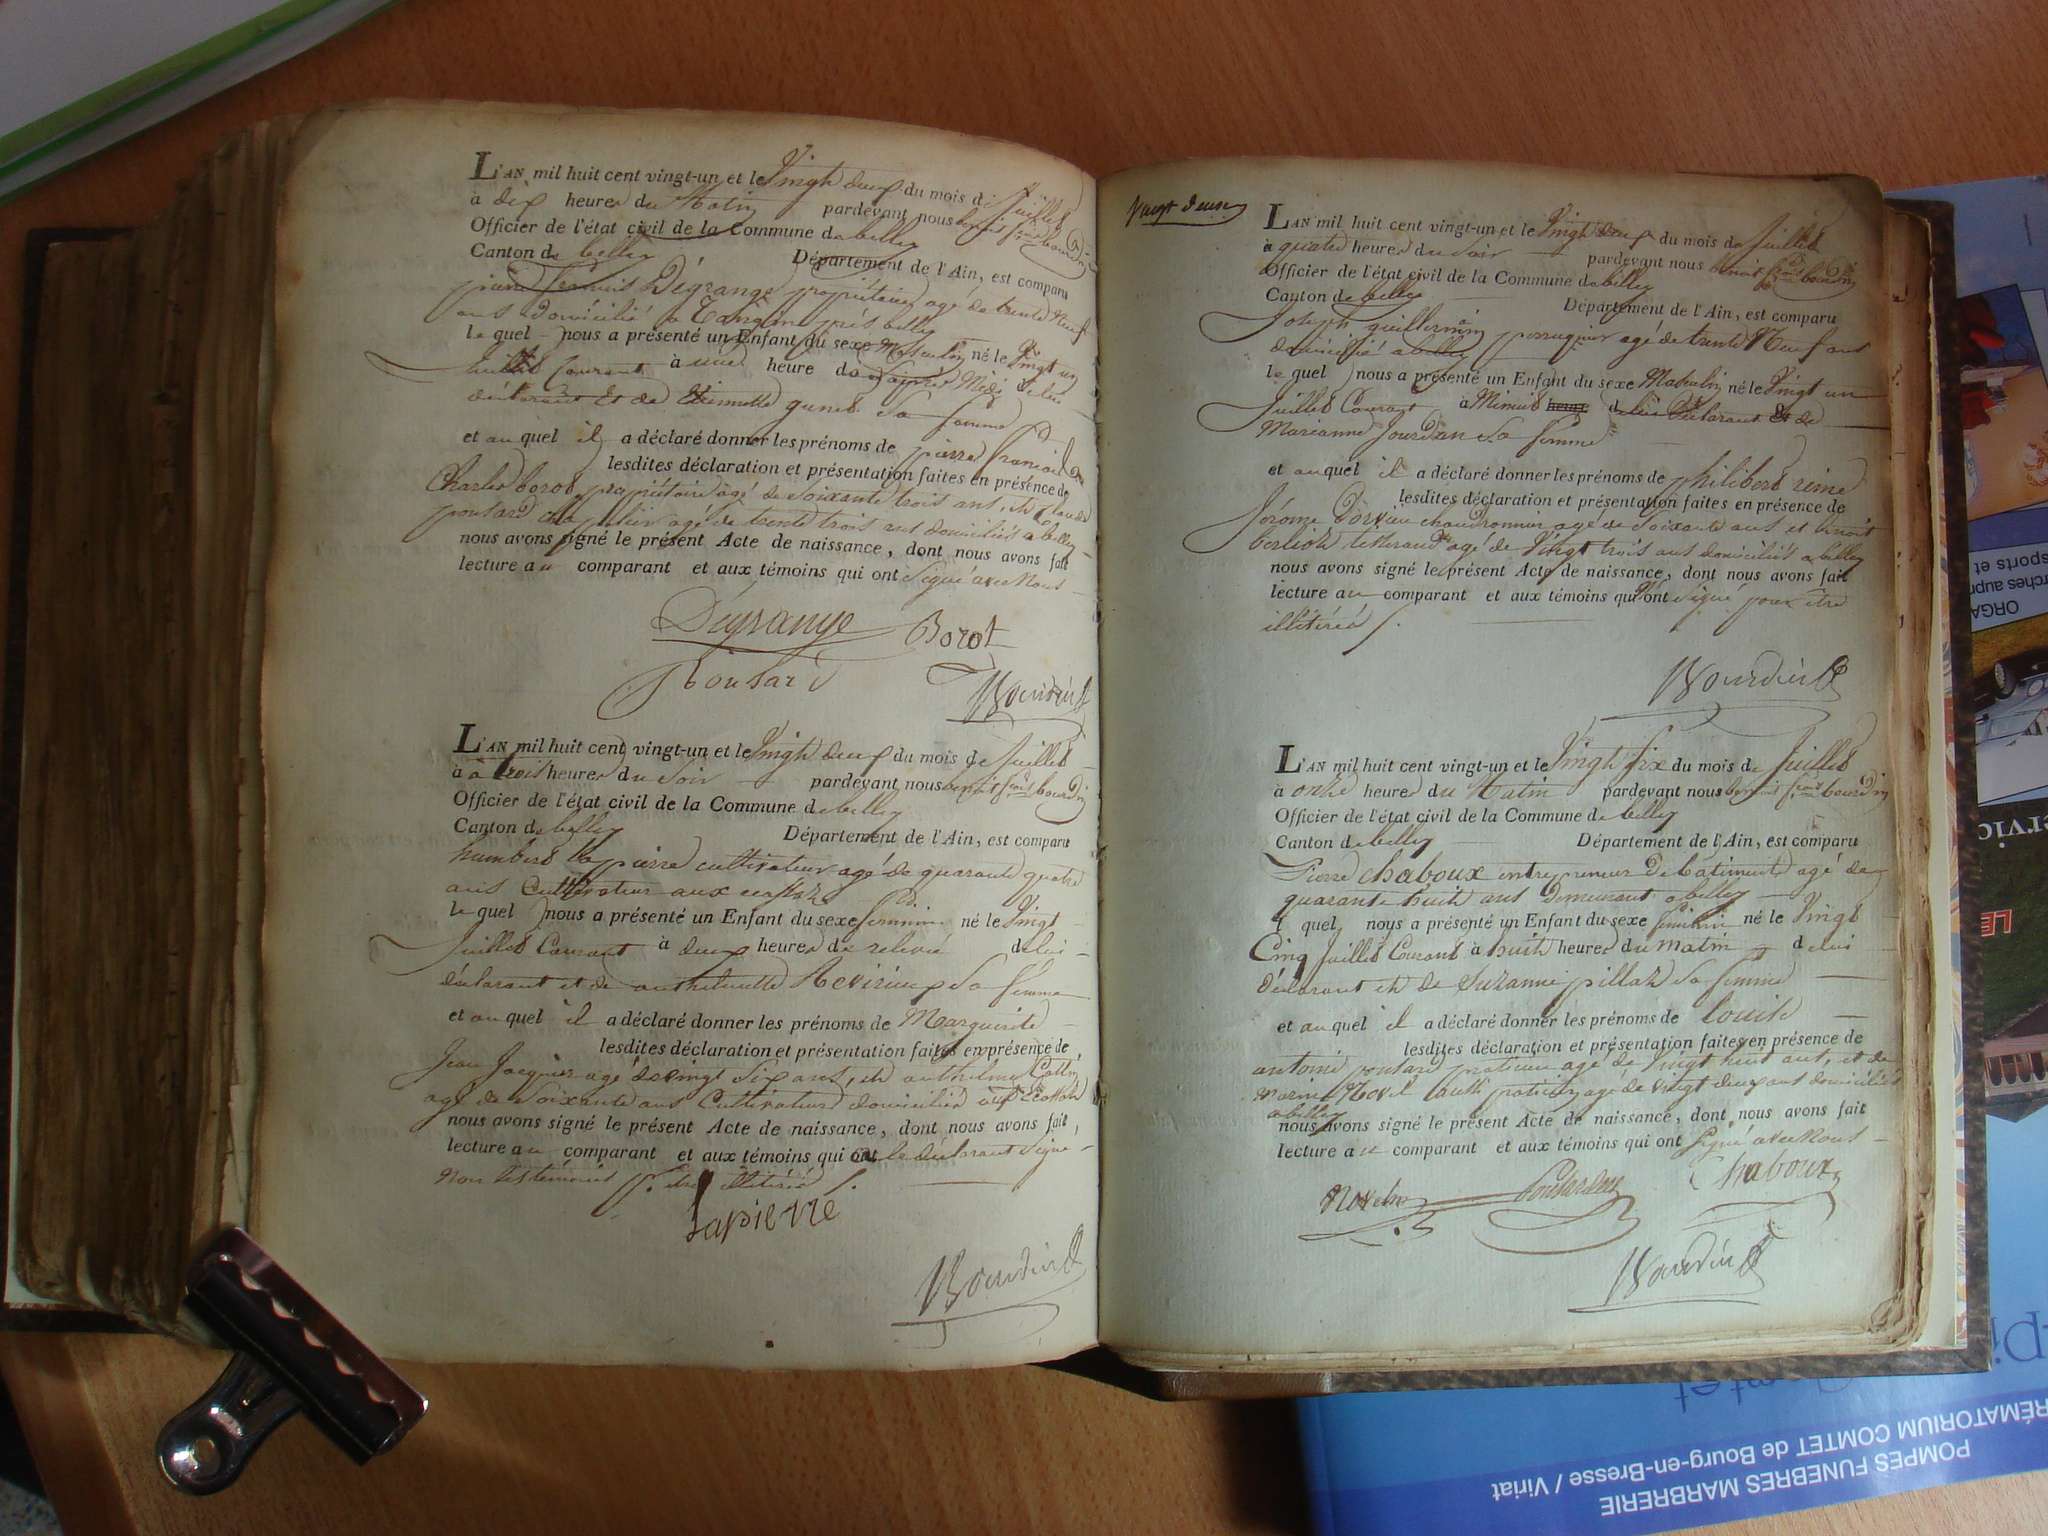 L'AN mil huit cent vingt-un et le Vingt deux du mois de Juillet
à dix heures du Matin pardevant nous benoit fçois bourdin
Officier de l'état civil de la Commune de belley
Canton de belley Département de l'Ain, est comparu
pierre francois Dégrange propriétaire agé de trente Neuf
ans Domicilié a près belley
le quel nous a présenté un Enfant du sexe Masculin né le Vingt un
Juillet Courant à une heure de après Midi de lui
déclarant Et de Etiennette sa femme
et au quel il a déclaré donner les prénoms de pierre francois
lesdites déclaration et présentation faites en présence de
Charles borot propriétaire agé de Soixante trois ans, et Claude
ponsard chapelier agé de trente trois ans domiciliés a belley
nous avons signé le présent Acte de naissance, dont nous avons fait
lecture au comparant et aux témoins qui ont Signé avec Nous
Dégrange Borot
Ponsard Bourdin
L'AN mil huit cent vingt-un et le Vingt deux du mois de Juillet
à à trois heures du Soir pardevant nous benoit fçois bourdin
Officier de l'état civil de la Commune de belley
Canton de belley Département de l'Ain, est comparu
humbert lapierre cultivateur agé de quarante quatre
ans Cultivateur aux
le quel nous a présenté un Enfant du sexe feminin né le Vingt
Juillet Courant à deux heures de relevée de lui
déclarant et de anthelmette sa femme
et au quel il a déclaré donner les prénoms de Marguerite
lesdites déclaration et présentation faites en présence de
Jean Jacquier agé de vingt six ans, et anthelme
agé de Soixante ans Cultivateurs domiciliés
nous avons signé le présent Acte de naissance, dont nous avons fait
lecture au comparant et aux témoins qui ont le déclarant Signé
Non les témoins p. être illitérés /.
lapierre
Bourdin
Vingt deux
L'AN mil huit cent vingt-un et le Vingt deux du mois de Juillet
à quatre heures du Soir pardevant nous benoit fçois bourdin
Officier de l'état civil de la Commune de belley
Canton de belley Département de l'Ain, est comparu
Joseph guillermin perruquier agé de trente Neuf ans
domicilié a belley
le quel nous a présenté un Enfant du sexe Masculin né le Vingt un
Juillet Courant à Minuit heure de lui Déclarant Et de
Marianne Jourdan Sa femme
et au quel il a déclaré donner les prénoms de philibert reine
lesdites déclaration et présentation faites en présence de
Jérome Dorvieu chaudronnier agé de Soixante ans et benoit
berlioz tisserand agé de Vingt trois ans domiciliés a belley
nous avons signé le présent Acte de naissance, dont nous avons fait
lecture au comparant et aux témoins qui n'ont Signé pour être
illitérés /.
Bourdin
L'AN mil huit cent vingt-un et le Vingt six du mois de Juillet
à onze heures du Matin pardevant nous benoit fçois bourdin
Officier de l'état civil de la Commune de belley
Canton de belley Département de l'Ain, est comparu
Pierre chaboux entrepreneur De batiment agé de
quarante huit ans Demeurant a belley
l quel nous a présenté un Enfant du sexe feminin né le Vingt
Cinq Juillet Courant à huit heures du matin de lui
déclarant et de Suzanne pillat sa femme
et au quel il a déclaré donner les prénoms de louise
lesdites déclaration et présentation faites en présence de
antoine ponsard praticien agé de Vingt huit ans, et de
praticien agé de vingt deux ans domiciliés
a belley
nous avons signé le présent Acte de naissance, dont nous avons fait
lecture au comparant et aux témoins qui ont Signé avec Nous
Chaboux
Bourdin
ORGA
sports et
rches aupr
ervic
LE
POMPES FUNEBRES MARBRERIE
RÉMATORIUM COMTET de Bourg-en-Bresse / Viriat